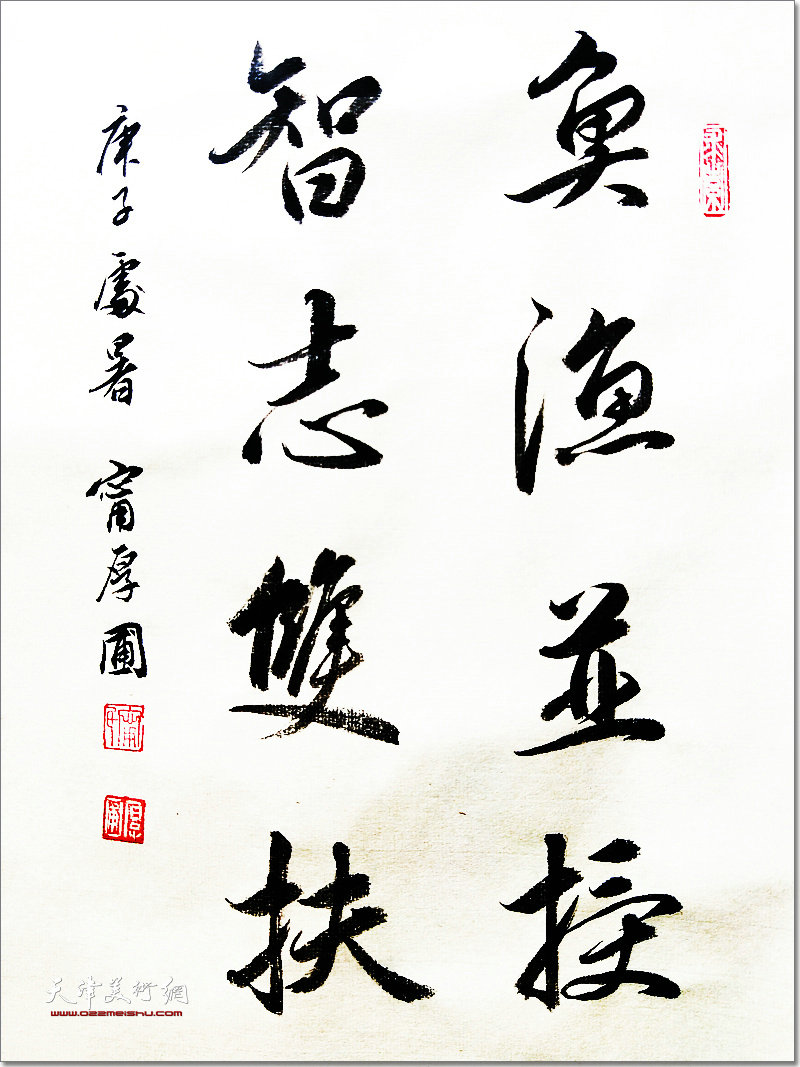 魚漁並授
智志雙扶
庚子處暑 甯厚圃
天津美術網
www.022meishu.com